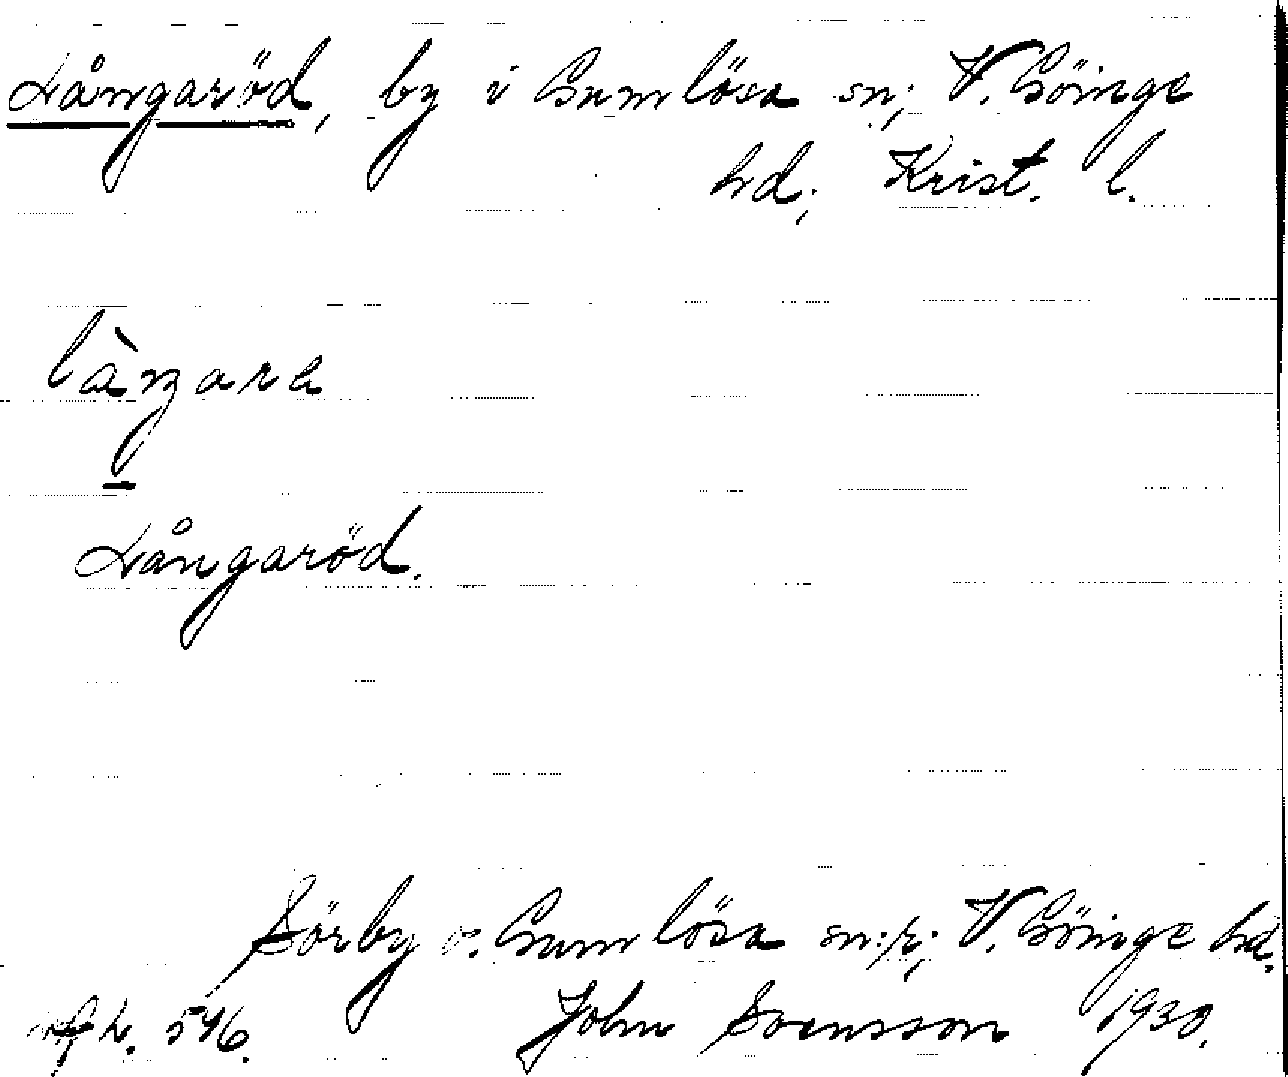 Långaröd, by i Gumlösa sn; V. Göinge
hd; Krist. l.
làŋara
Långaröd.
Sörby o. Gumlösa sn:r; V. Göinge hd.
h. 546. John Svensson 1930.